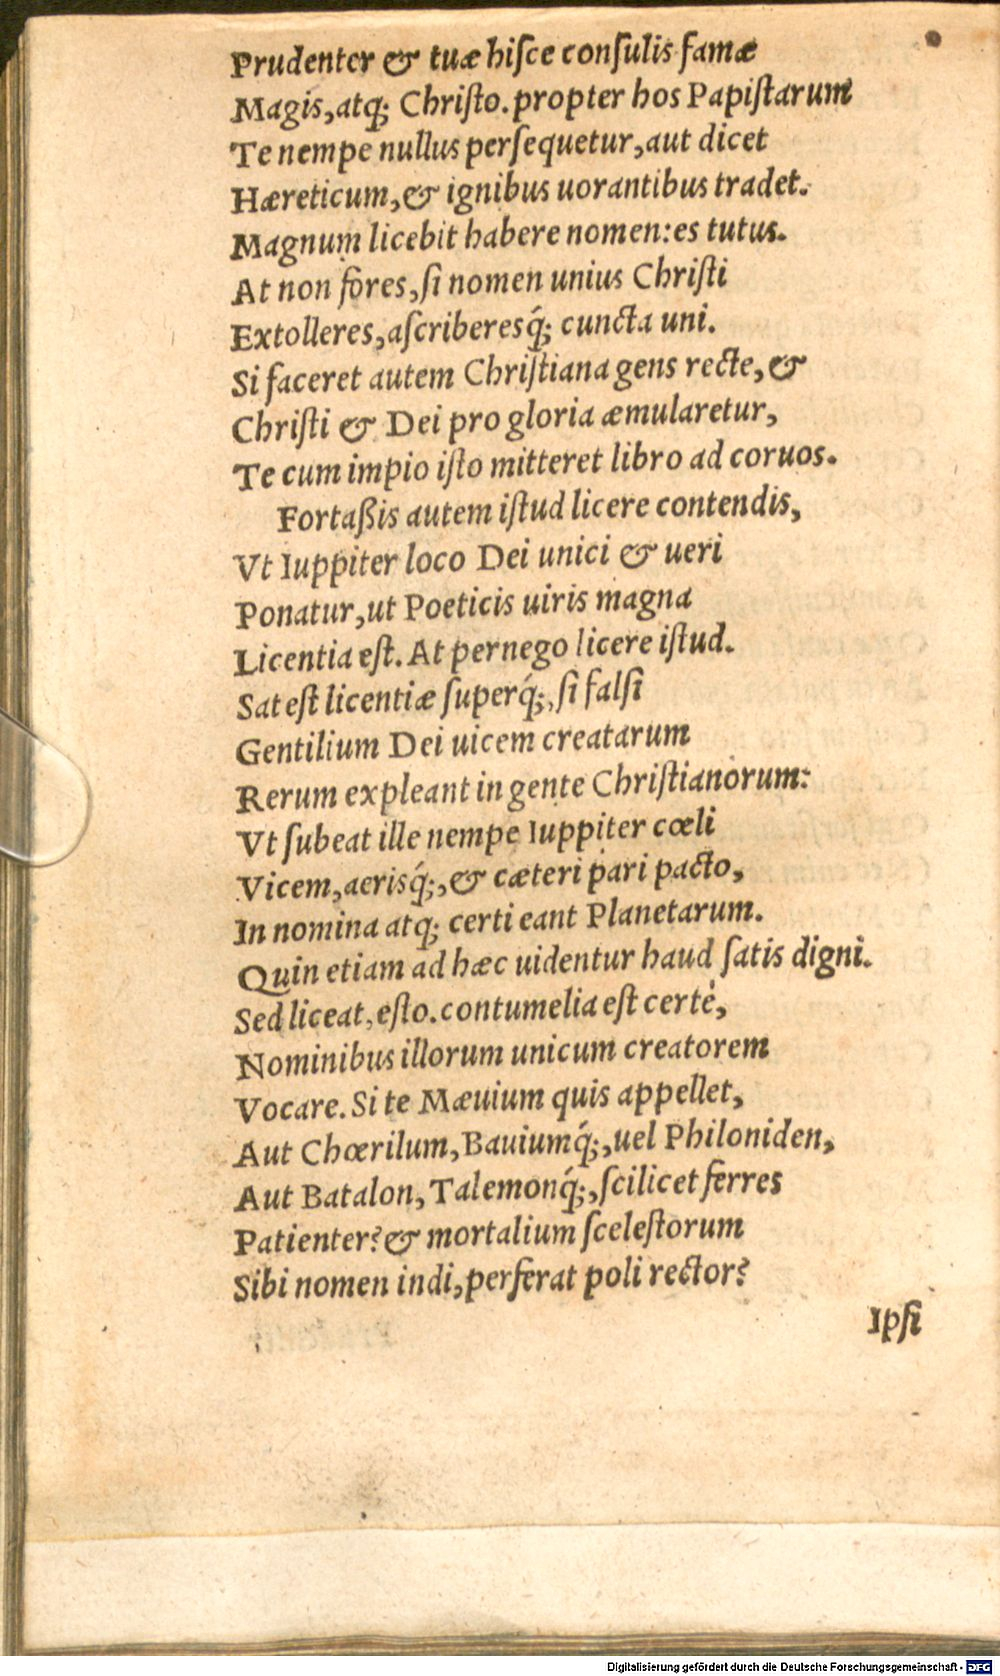 Prudenter & tuæ hiſce conſulis famæ
Magis, atq; Chriſto. propter hos Papiſtarum
Te nempe nullus perſequetur, aut dicet
Hæreticum, & ignibus uorantibus tradet.
Magnum licebit habere nomen: es tutus.
At non fores, ſi nomen unius Chriſti
Extolleres, aſcriberesq́; cuncta uni.
Si faceret autem Chriſtiana gens recte, &
Chriſti & Dei pro gloria æmularetur,
Te cum impio iſto mitteret libro ad coruos.
Fortaßis autem iſtud licere contendis,
Vt Iuppiter loco Dei unici & ueri
Ponatur, ut Poeticis uiris magna
Licentia eſt. At pernego licere iſtud.
Sat eſt licentiæ ſuperq́;, ſi falſi
Gentilium Dei uicem creatarum
Rerum expleant in gente Chriſtianorum:
Vt ſubeat ille nempe Iuppiter cœli
Vicem, aerisq́;, & cæteri pari pacto,
In nomina atq; certi eant Planetarum.
Quin etiam ad hæc uidentur haud ſatis digni.
Sed liceat, eſto. contumelia eſt certè,
Nominibus illorum unicum creatorem
Vocare. Si te Mæuium quis appellet,
Aut Chœrilum, Bauiumq́;, uel Philoniden,
Aut Batalon, Talemonq́;, ſcilicet ferres
Patienter? & mortalium ſceleſtorum
Sibi nomen indi, perferat poli rector?
Ipſi
Digitalisierung gefördert durch die Deutsche Forschungsgemeinschaft - DFG